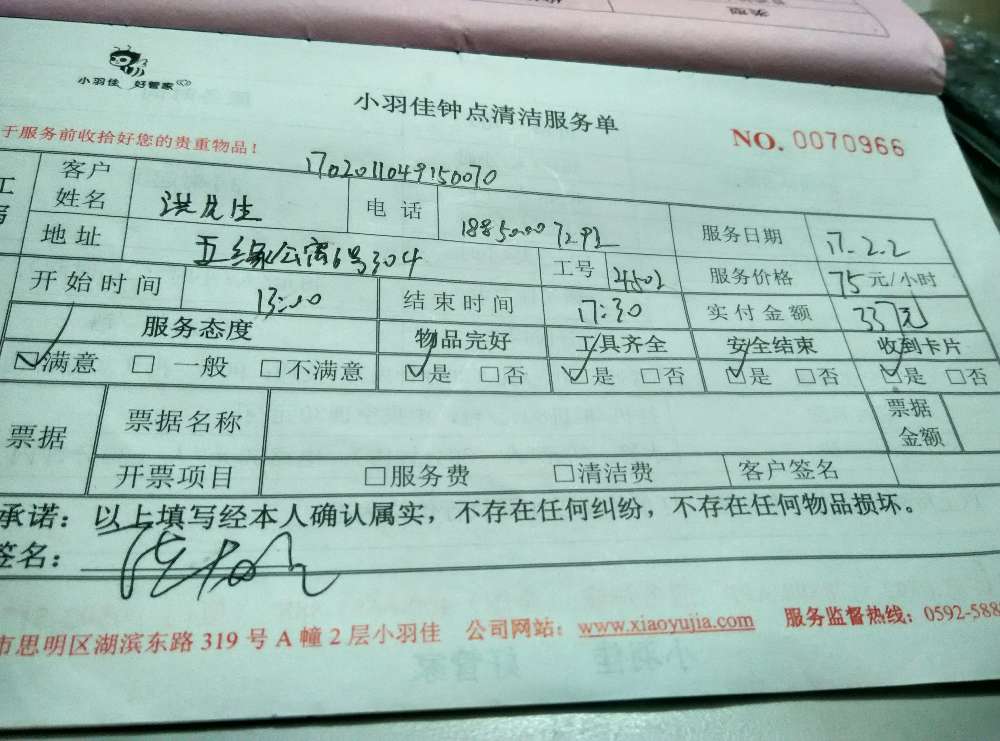 类型
小羽佳 好管家
小羽佳钟点清洁服务单
NO. 0070966
于服务前收拾好您的贵重物品！
1702011049150070
客户姓名 洪先生 电话 服务日期 17.2.2
地址 五缘公寓6号304 工号 4502 服务价格 75元/小时
开始时间 13:00 结束时间 17:30 实付金额 337元
服务态度 物品完好 工具齐全 安全结束 收到卡片
☑满意 □一般 □不满意 ☑是 □否 ☑是 □否 ☑是 □否 ☑是 □否
票据 票据名称 票据金额
开票项目 □服务费 □清洁费 客户签名
承诺：以上填写经本人确认属实，不存在任何纠纷，不存在任何物品损坏。
签名：
市思明区湖滨东路 319 号 A 幢 2 层小羽佳 公司网站：www.xiaoyujia.com 服务监督热线：0592-588